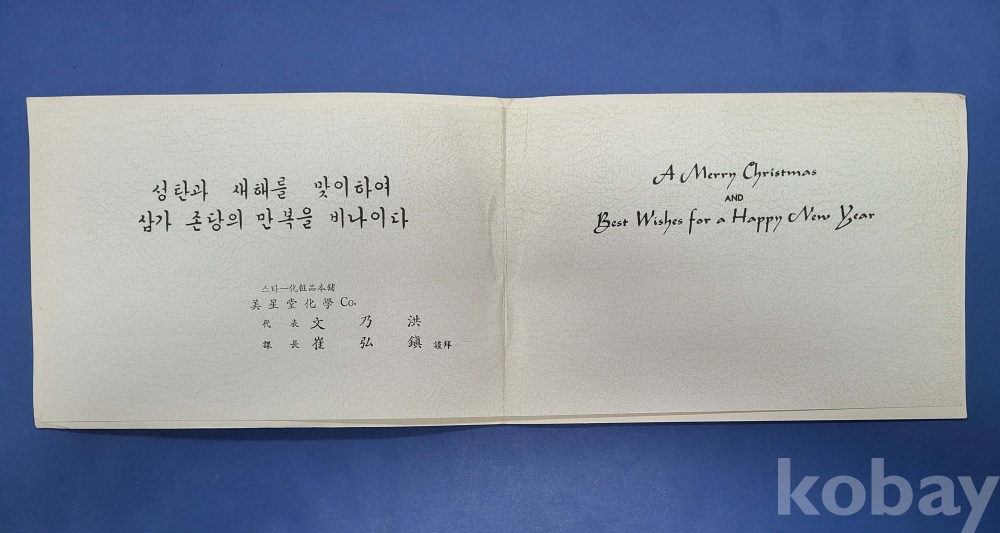 성탄과 새해를 맞이하여
삼가 존당의 만복을 비나이다
스타―化粧品本舖
美星堂化學 Co.
代表 文乃洪
課長 崔弘鎭 謹拜
A Merry Christmas
AND
Best Wishes for a Happy New Year
kobay